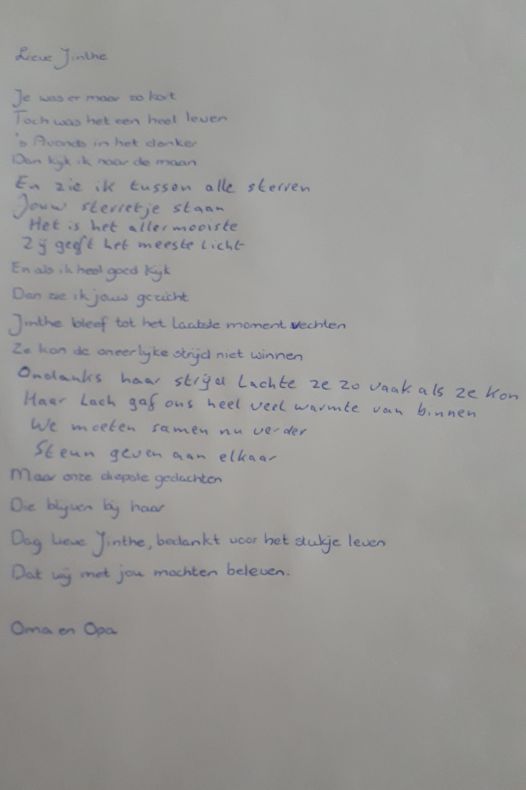 Lieve Jinthe
Je was er maar zo kort
Toch was het een heel leven
's Avonds in het donker
Dan kijk ik naar de maan
En zie ik tussen alle sterren
Jouw sterretje staan
Het is het allermooiste
Zij geeft het meeste licht
En als ik heel goed kijk
Dan zie ik jouw gezicht
Jinthe bleef tot het laatste moment vechten
Ze kon de oneerlijke strijd niet winnen
Ondanks haar strijd Lachte ze zo vaak als ze kon
Haar Lach gaf ons heel veel warmte van binnen
We moeten samen nu verder
Steun geven aan elkaar
Maar onze diepste gedachten
Die blijven bij haar
Dag Lieve Jinthe, bedankt voor het stukje leven
Dat wij met jou mochten beleven.
Oma en Opa